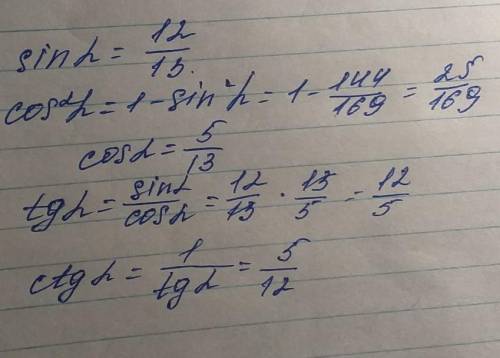 sin α = 12/13.
cos²α = 1 - sin²α = 1 - 144/169 = 25/169
cos α = 5/13
tg α = sin α/cos α = 12/13 · 13/5 = 12/5
ctg α = 1/tg α = 5/12